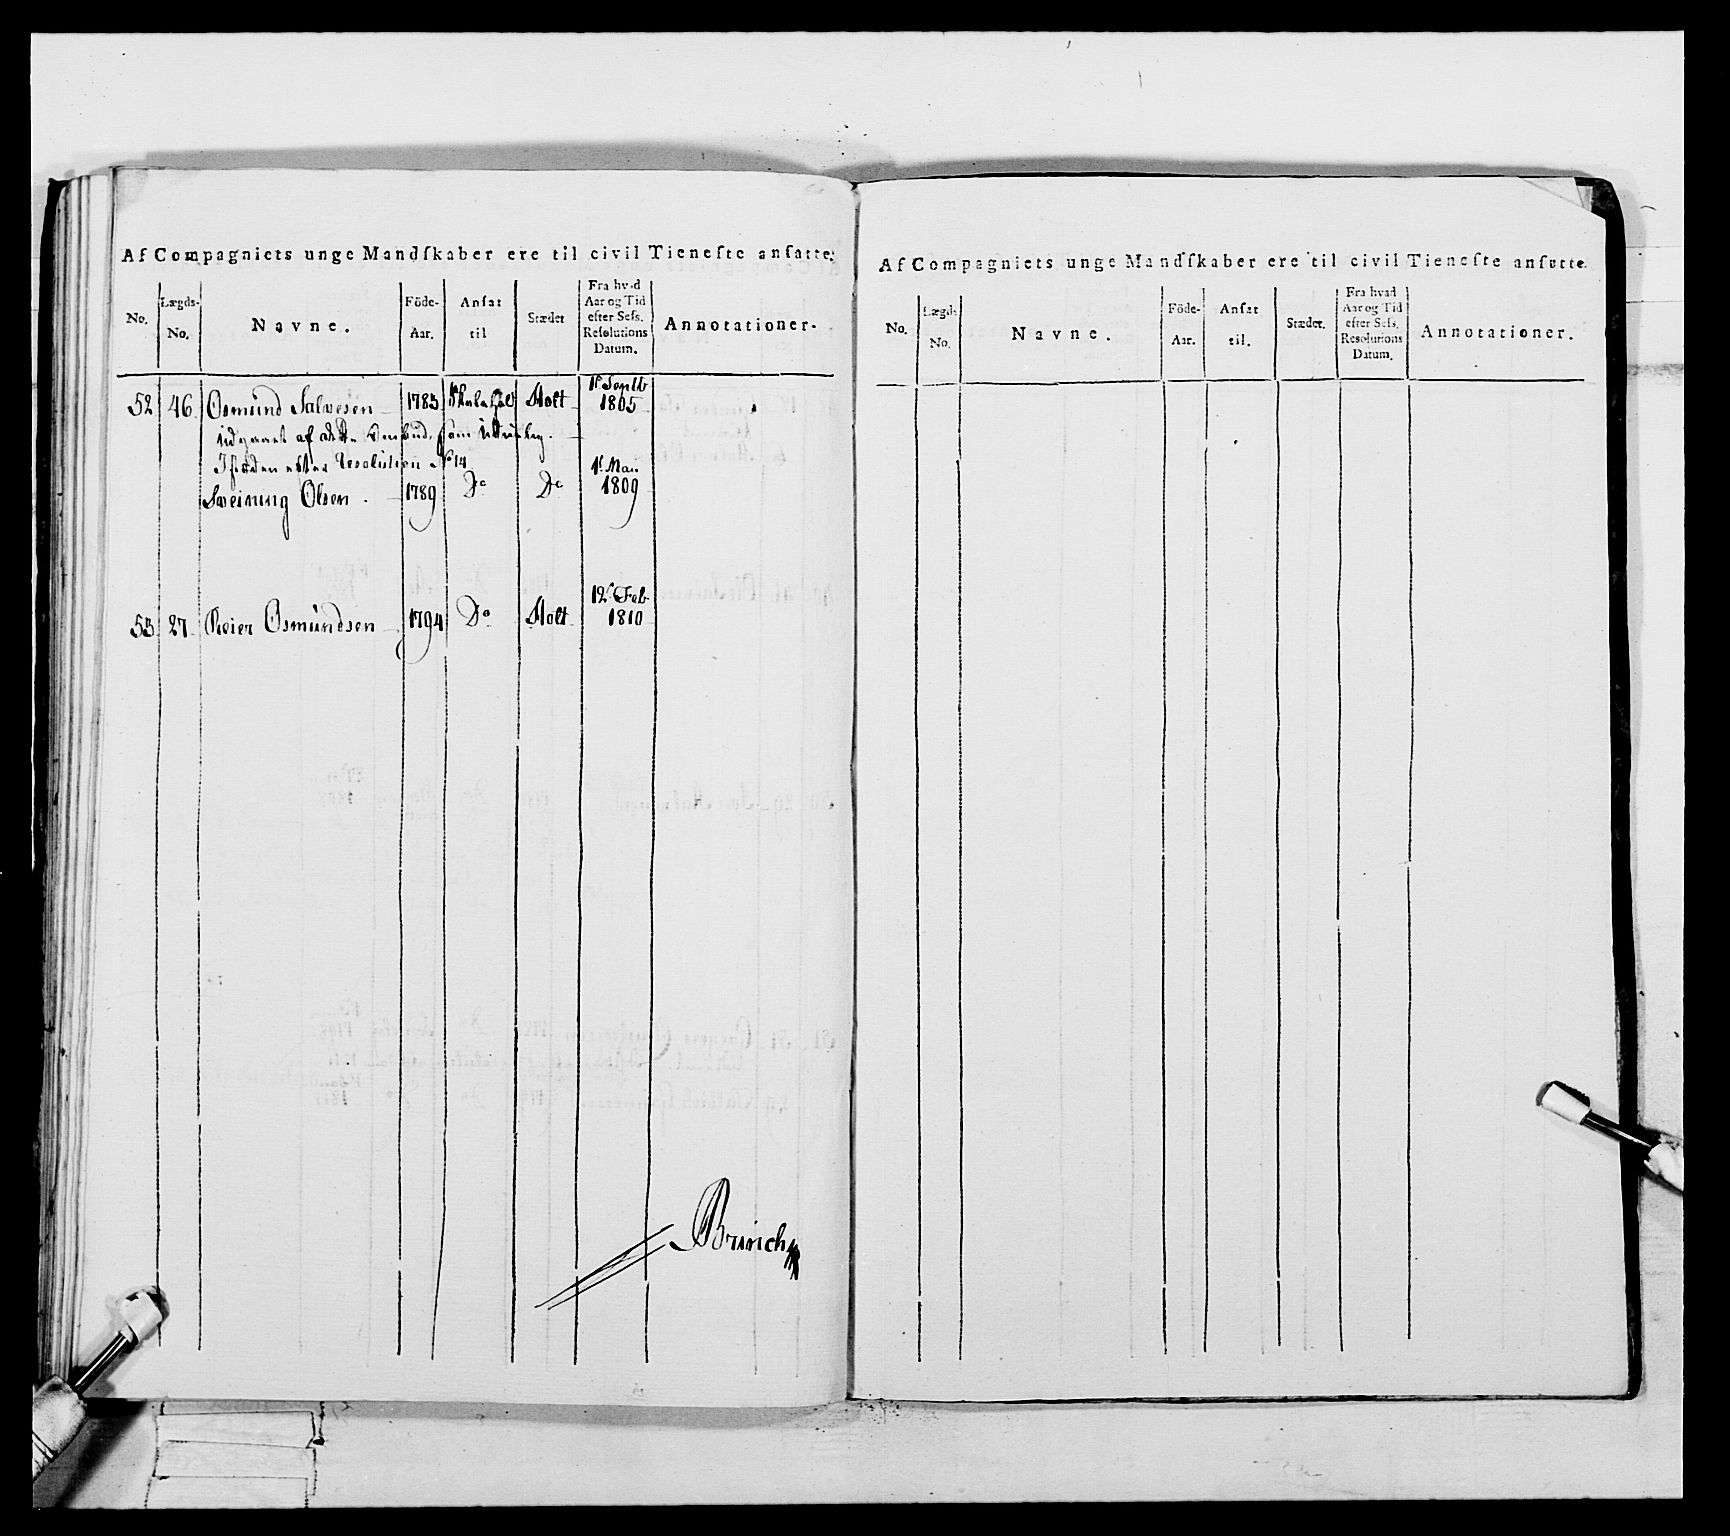 Af Compagniets unge Mandſkaber ere til civil Tieneſte anſatte.
No.
Lægds-
No.
Navne.
Föde-
Aar.
Anſat
til
Stædet
Fra hvad
Aar og Tid
efter Seſſ.
Reſolutions
Datum.
Annotationer.
52 46 Osmund Salvesen 1783 Holt 1t Septb 1805
udgaaet af dette Ombud, som
Isteden efter Resolution No 14
Sveinung Olsen. 1789 Do Do 1t Mai 1809
53 27 Reier Osmundsen 1794 Do Holt 12t Feb 1810
Brinch
Af Compagniets unge Mandſkaber ere til civil Tieneſte anſatte.
No.
Lægds-
No.
Navne.
Föde-
Aar.
Anſat
til.
Stædet.
Fra hvad
Aar og Tid
efter Seſſ.
Resolutions
Datum.
Annotationer.